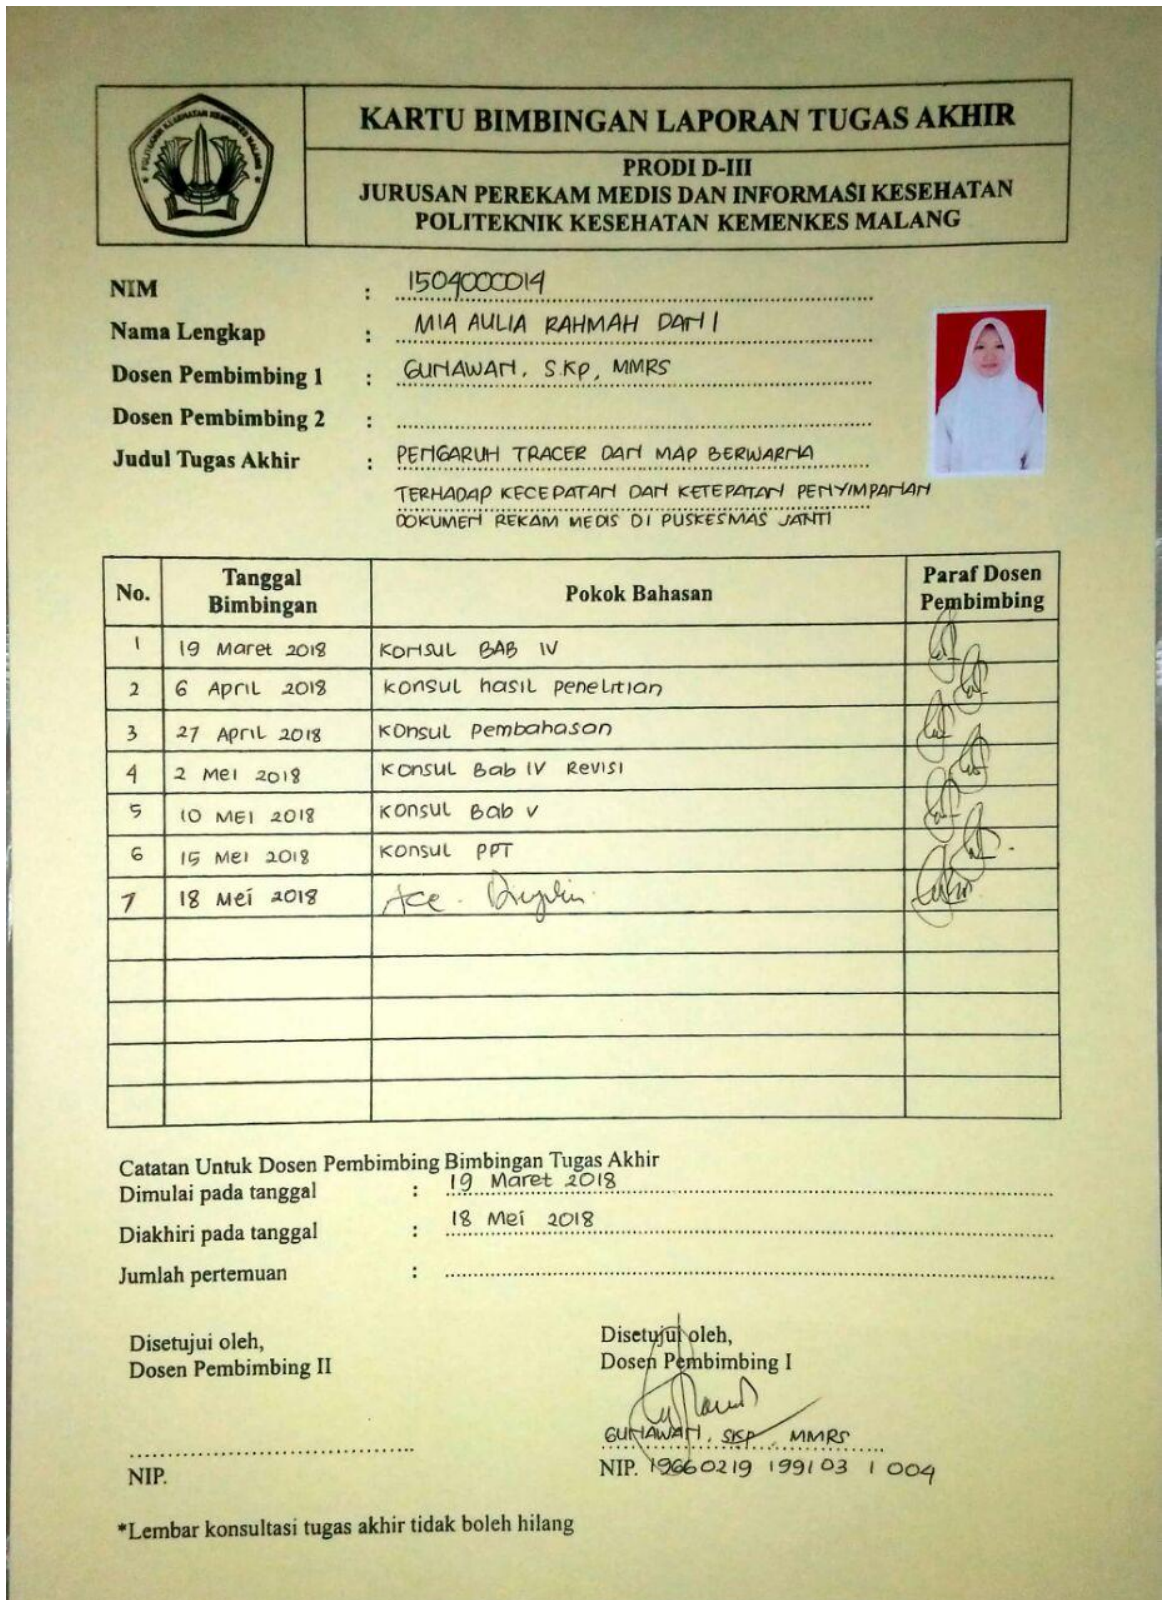 POLITEKNIK KESEHATAN KEMENKES MALANG
KARTU BIMBINGAN LAPORAN TUGAS AKHIR
PRODI D-III
JURUSAN PEREKAM MEDIS DAN INFORMASI KESEHATAN
POLITEKNIK KESEHATAN KEMENKES MALANG
NIM : 1504000014
Nama Lengkap : MIA AULIA RAHMAH DANI
Dosen Pembimbing 1 : GUNAWAN, S.Kp, MMRS
Dosen Pembimbing 2 :
Judul Tugas Akhir : PENGARUH TRACER DAN MAP BERWARNA
TERHADAP KECEPATAN DAN KETEPATAN PENYIMPANAN
DOKUMEN REKAM MEDIS DI PUSKESMAS JANTI
No. Tanggal Bimbingan Pokok Bahasan Paraf Dosen Pembimbing
1 19 Maret 2018 Konsul BAB IV
2 6 April 2018 Konsul hasil penelitian
3 27 April 2018 Konsul pembahasan
4 2 Mei 2018 Konsul Bab IV Revisi
5 10 MEI 2018 Konsul Bab V
6 15 Mei 2018 Konsul PPT
7 18 Mei 2018 Acc.
Catatan Untuk Dosen Pembimbing Bimbingan Tugas Akhir
Dimulai pada tanggal : 19 Maret 2018
Diakhiri pada tanggal : 18 Mei 2018
Jumlah pertemuan :
Disetujui oleh,
Dosen Pembimbing II
NIP.
Disetujui oleh,
Dosen Pembimbing I
GUNAWAN, SKp, MMRS
NIP. 19660219 199103 1 004
*Lembar konsultasi tugas akhir tidak boleh hilang